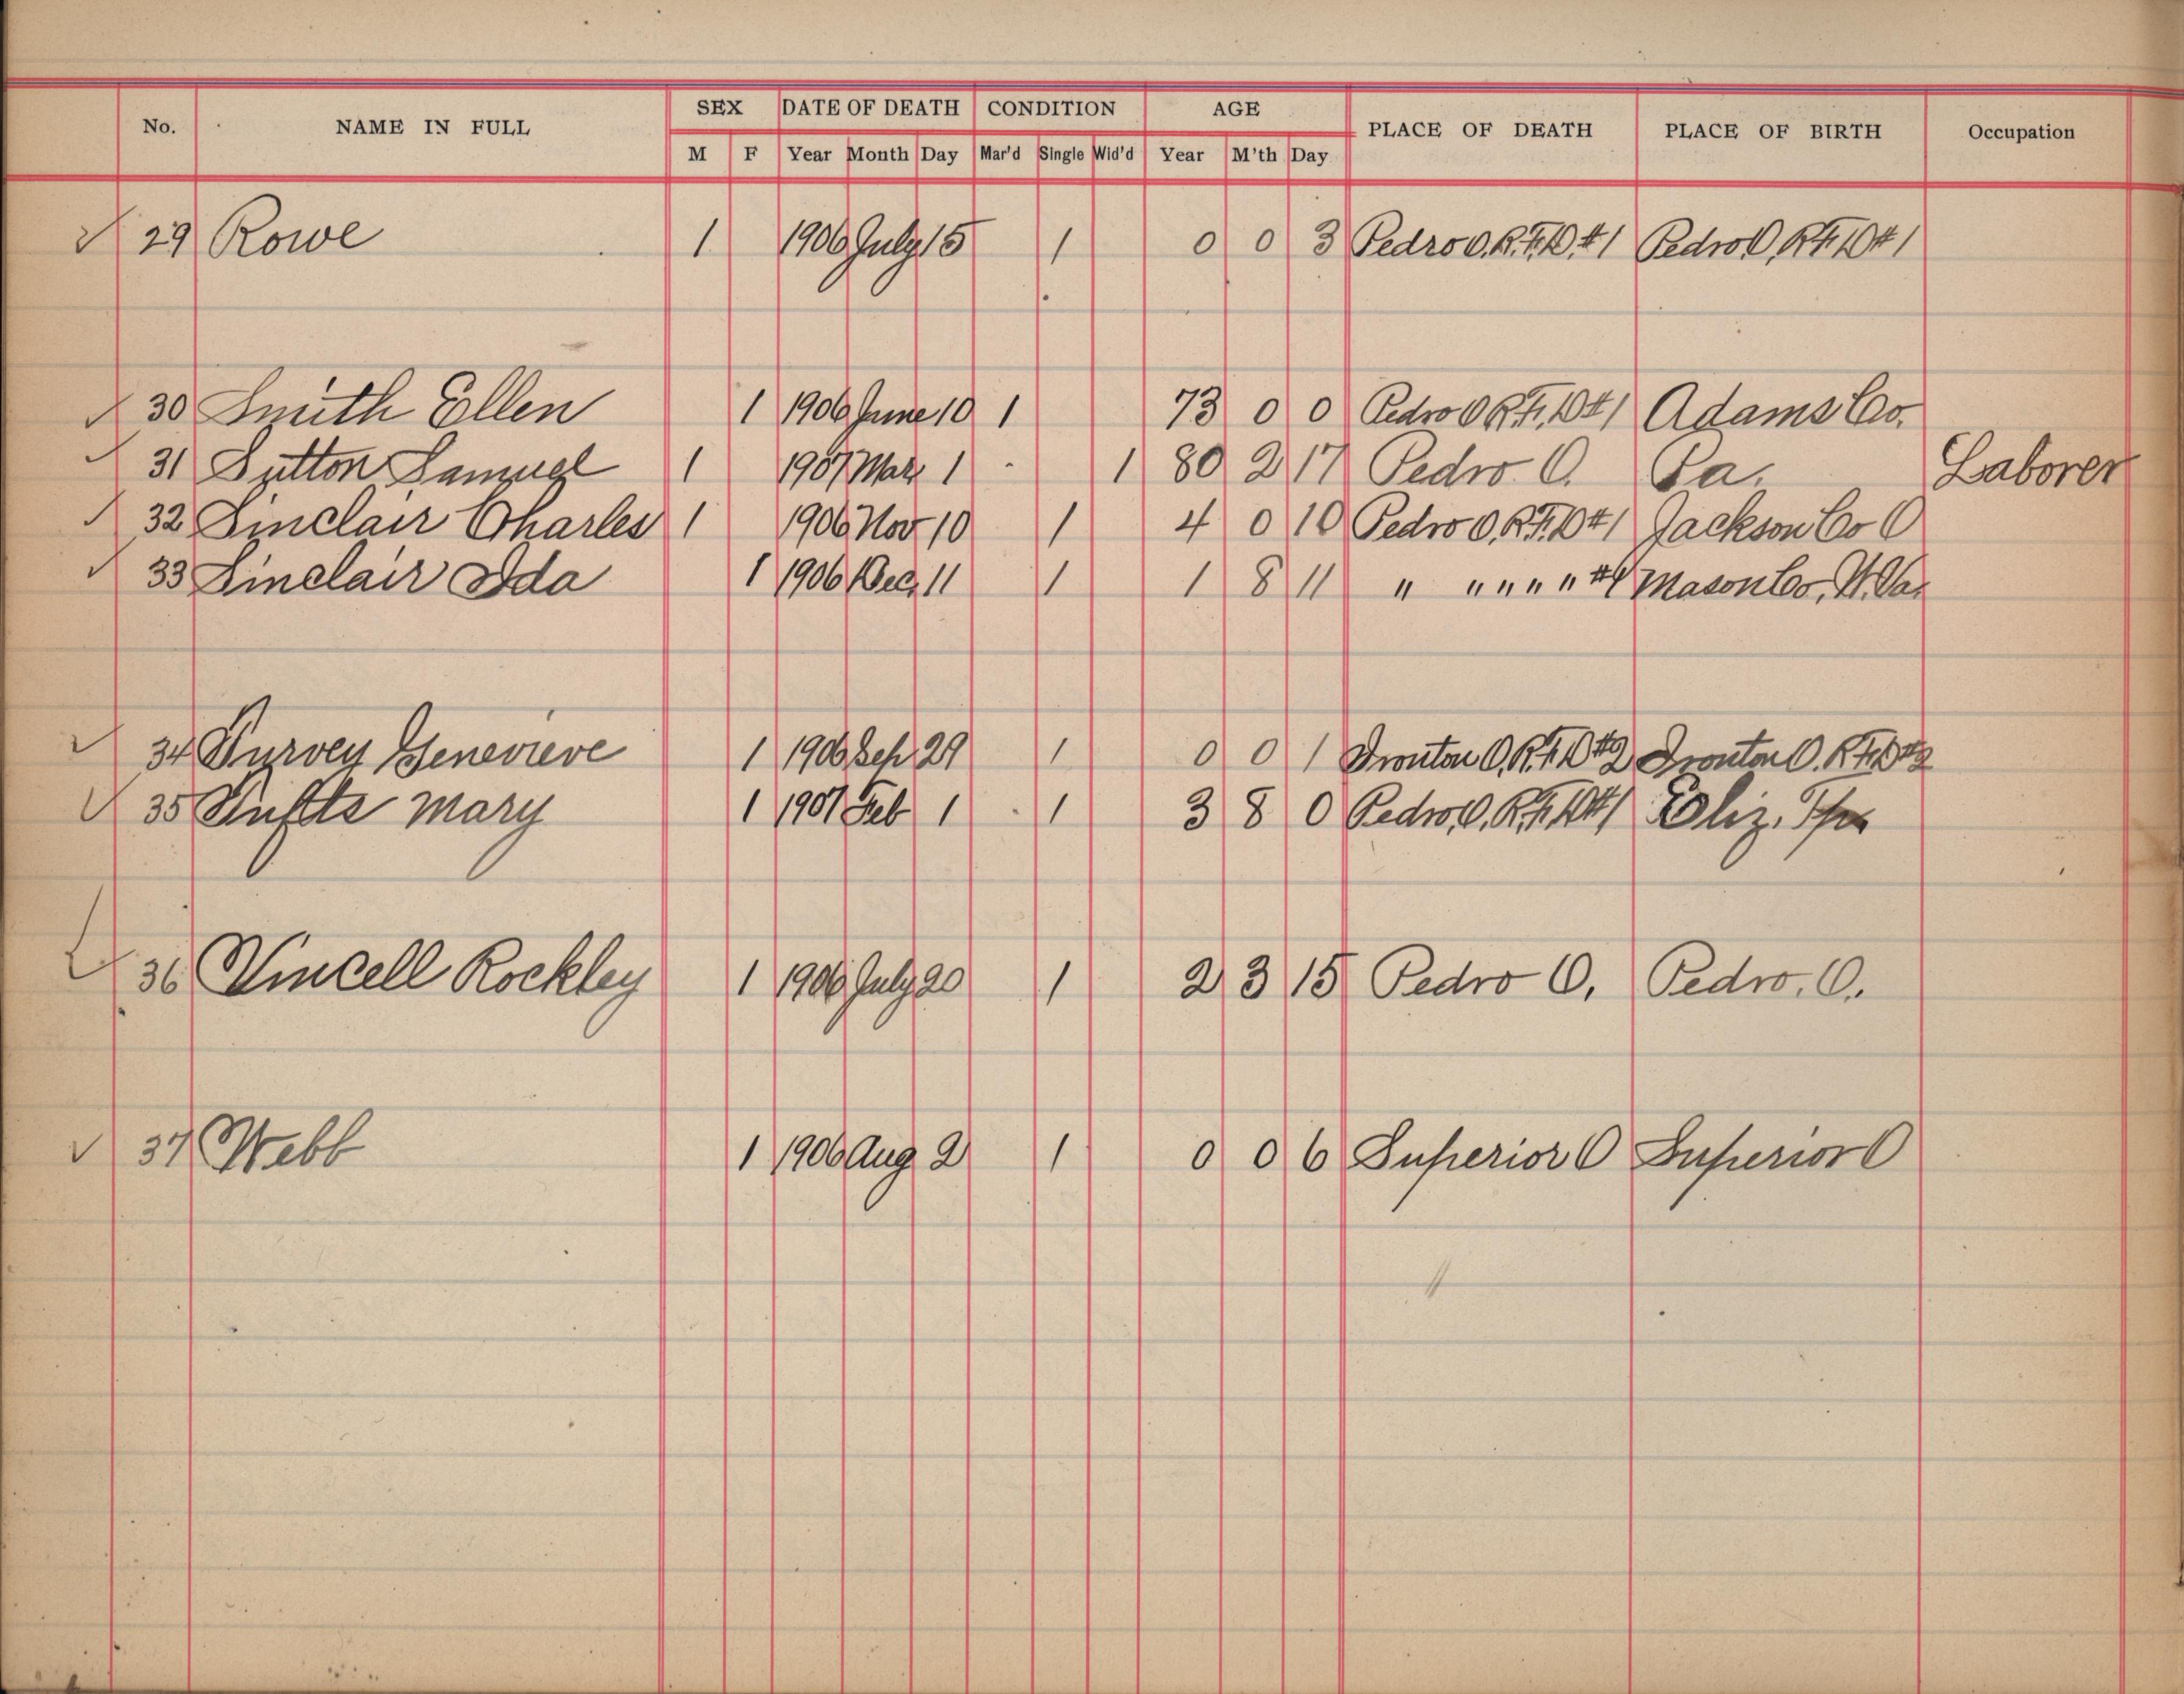 No. NAME IN FULL SEX DATE OF DEATH CONDITION AGE PLACE OF DEATH PLACE OF BIRTH Occupation
M F Year Month Day Mar'd Single Wid'd Year M'th Day
29 Rowe 1 1906 July 15 1 0 0 3 Pedro O. R.F.D #1 Pedro O, R.F.D #1
30 Smith Ellen 1 1906 June 10 1 73 0 0 Pedro O R.F.D #1 Adams Co.
31 Sutton Samuel 1 1907 Mar 1 1 80 2 17 Pedro O. Pa. Laborer
32 Sinclair Charles 1 1906 Nov 10 1 4 0 10 Pedro O. R.F.D #1 Jackson Co O
33 Sinclair Ida 1 1906 Dec, 11 1 1 8 11 " " " " " #1 Mason Co, W. Va.
34 Turvey Genevieve 1 1906 Sep 29 1 0 0 1 Ironton O. R.F.D #2 Ironton O. R.F.D #2
35 Mary 1 1907 Feb 1 1 3 8 0 Pedro, O. R.F.D #1 Eliz. Tp.
36 Vincell Rockley 1 1906 July 20 1 2 3 15 Pedro O, Pedro, O.
37 Webb 1 1906 Aug 2 1 0 0 6 Superior O Superior O